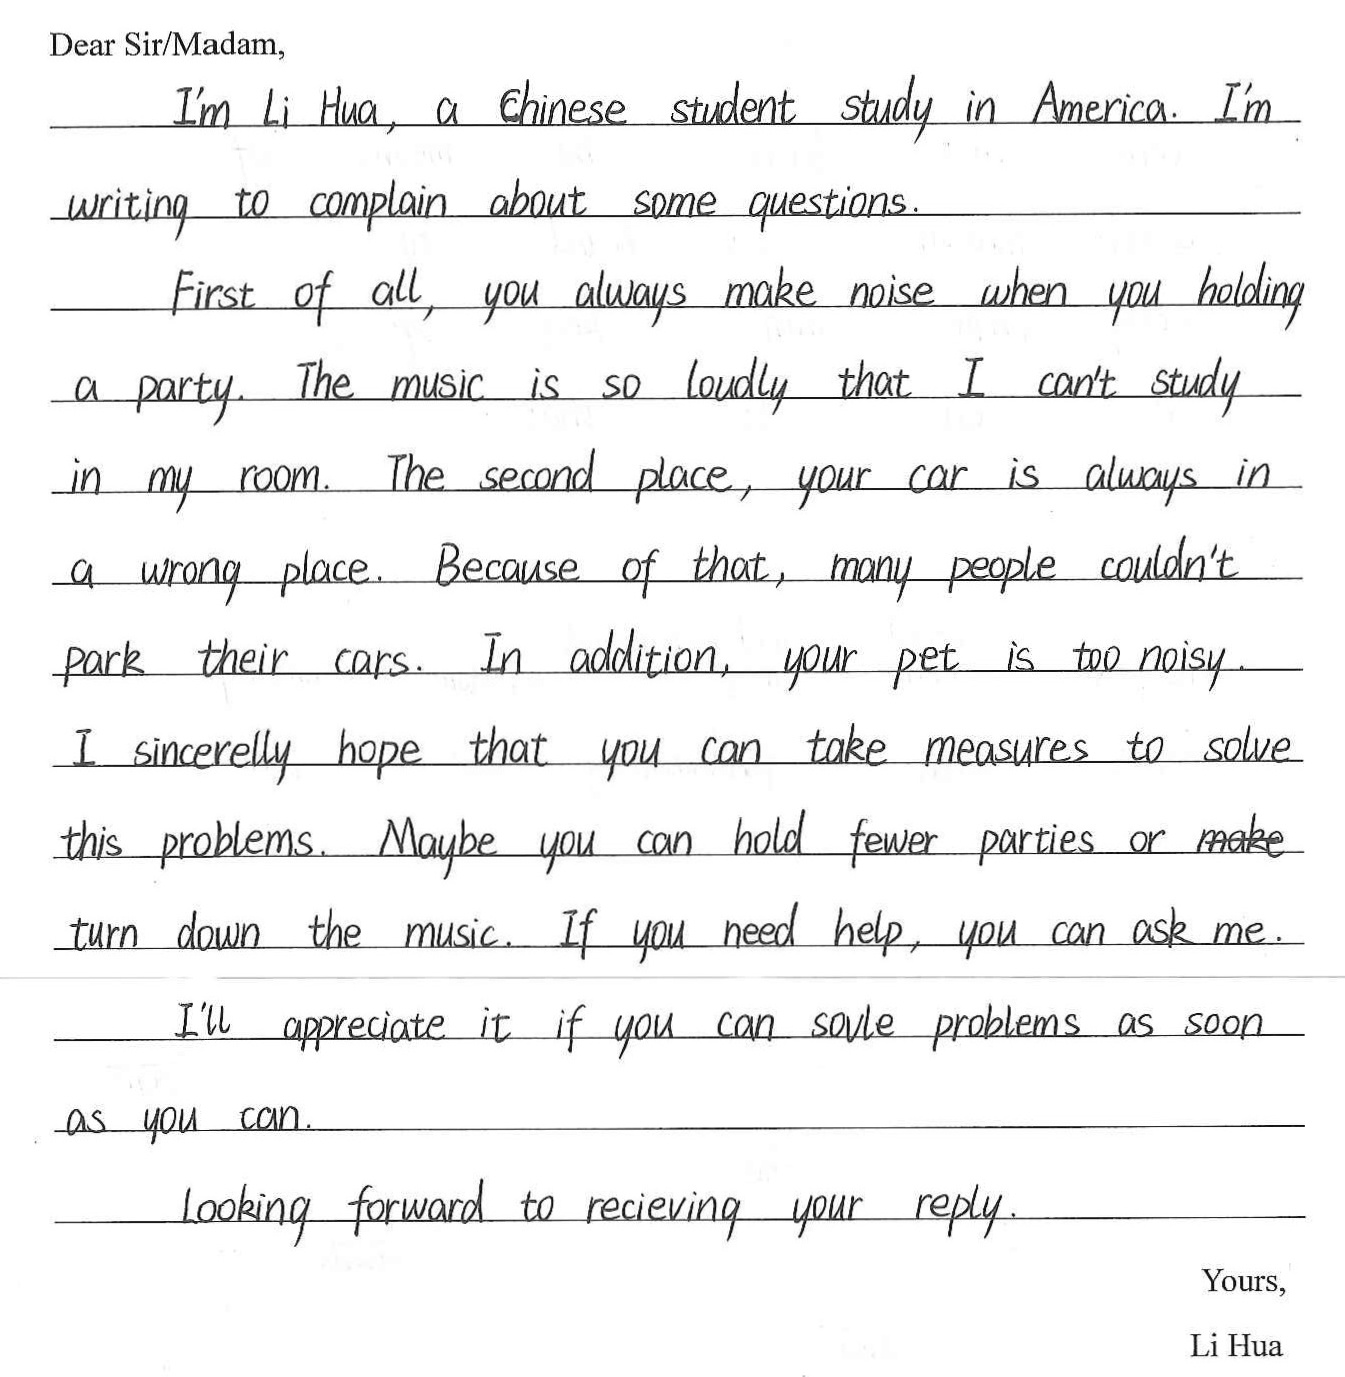 Dear Sir/Madam,
I'm Li Hua, a Chinese student study in America. I'm
writing to complain about some questions.
First of all, you always make noise when you holding
a party. The music is so loudly that I can't study
in my room. The second place, your car is always in
a wrong place. Because of that, many people couldn't
park their cars. In addition, your pet is too noisy.
I sincerelly hope that you can take measures to solve
this problems. Maybe you can hold fewer parties or make
turn down the music. If you need help, you can ask me.
I'll appreciate it if you can sovle problems as soon
as you can.
Looking forward to recieving your reply.
Yours,
Li Hua